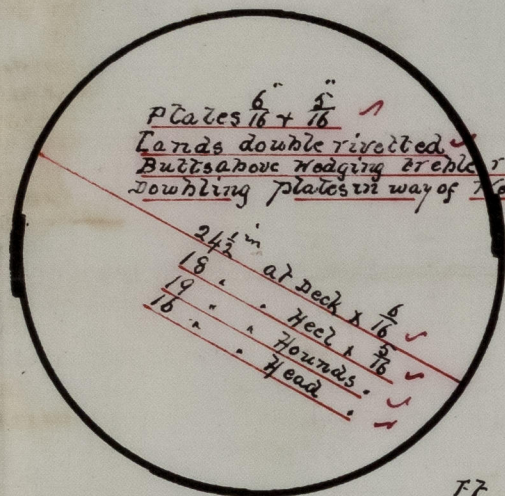 Plates 6/16" + 5/16"
Lands double rivetted
Butts above Wedging treble r
Dowbling Plates in way of
24 1/2 in at Deck x 6/16
18 " " Heel x 5/16
19 " " Hounds "
16 " " Head "